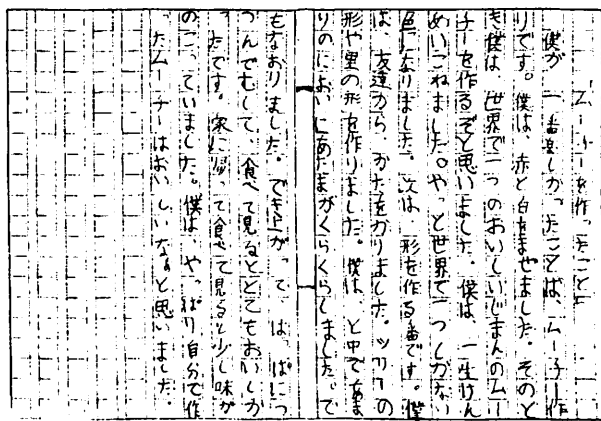 ムーチーを作ったこと
僕が一番楽しかったことは、ムーチー作
りです。僕は、赤と白をまぜました。そのと
き僕は、世界で一つのおいしいじまんのムー
チーを作るぞと思いました。僕は、一生けん
めいこねました。やっと世界で一つしかない
色になりました。次は、形を作る番です。僕
は、友達から、かたをかりました。ツリーの
形や星の形を作りました。僕は、と中であま
りのにおいにあたまがくらくらしました。で
もなおりました。できあがって、はっぱにつ
つんでむして、食べて見るととてもおいしか
ったです。家に帰って食べて見ると少し味が
のこっていました。僕は、やっぱり自分で作
ったムーチーはおいしいなあと思いました。